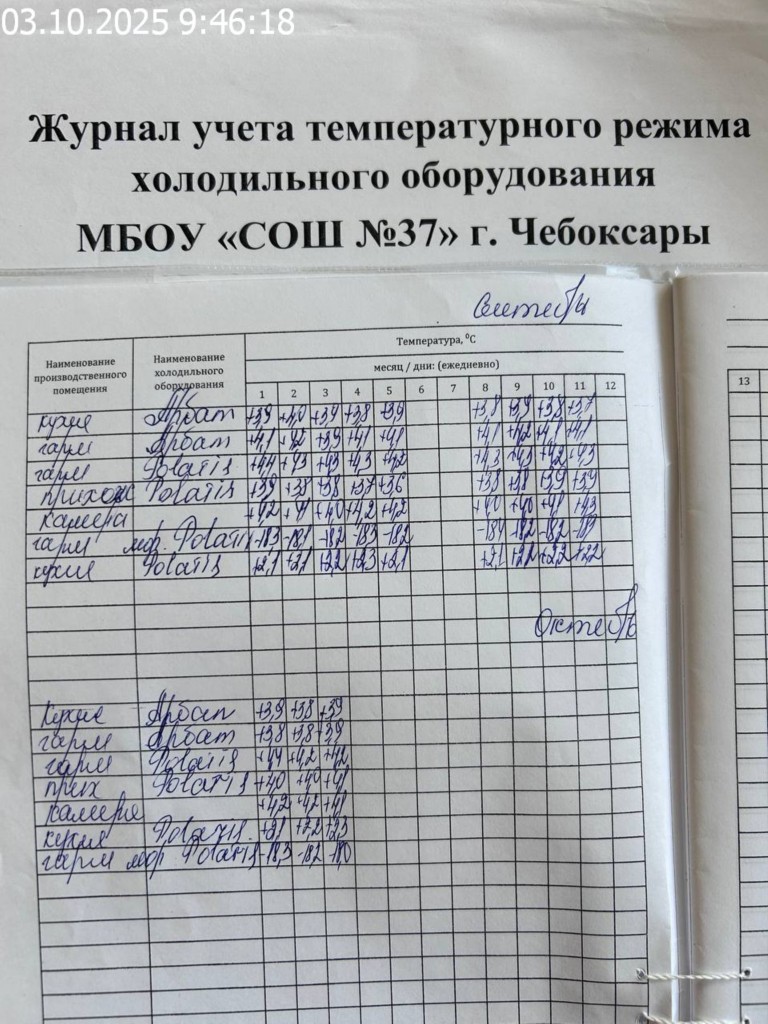 03.10.2025 9:46:18
Журнал учета температурного режима
холодильного оборудования
МБОУ «СОШ №37» г. Чебоксары
Сентябрь
Наименование производственного помещения
Наименование холодильного оборудования
Температура, ⁰С
месяц / дни: (ежедневно)
1 2 3 4 5 6 7 8 9 10 11 12
13
кухня Арбат +3,9 +4,0 +3,9 +3,8 +3,9 +3,8 +3,9 +3,8 +3,7
гарм Арбат +4,1 +4,2 +3,9 +4,1 +4,1 +4,1 +4,2 +4,1 +4,1
гарм Polaris +4,4 +4,3 +4,3 +4,3 +4,2 +4,3 +4,3 +4,2 +4,3
прихож Polaris +3,9 +3,8 +3,8 +3,7 +3,6 +3,8 +3,8 +3,9 +3,9
камера +4,2 +4,1 +4,0 +4,2 +4,2 +4,0 +4,0 +4,1 +4,3
гарм мор. Polaris -18,3 -18,1 -18,2 -18,3 -18,2 -18,4 -18,2 -18,2
кухня Polaris +2,1 +2,1 +2,2 +2,3 +2,1 +2,1 +2,2 +2,2 +2,2
Октябрь
Кухня Арбат +3,9 +3,8 +3,9
гарм Арбат +3,8 +3,8 +3,9
гарм Polaris +4,4 +4,2 +4,2
прих Polaris +4,0 +4,0 +4,1
камера +4,2 +4,2 +4,1
кухня Polaris +2,1 +2,2 +2,3
гарм мор. Polaris -18,3 -18,2 -18,0